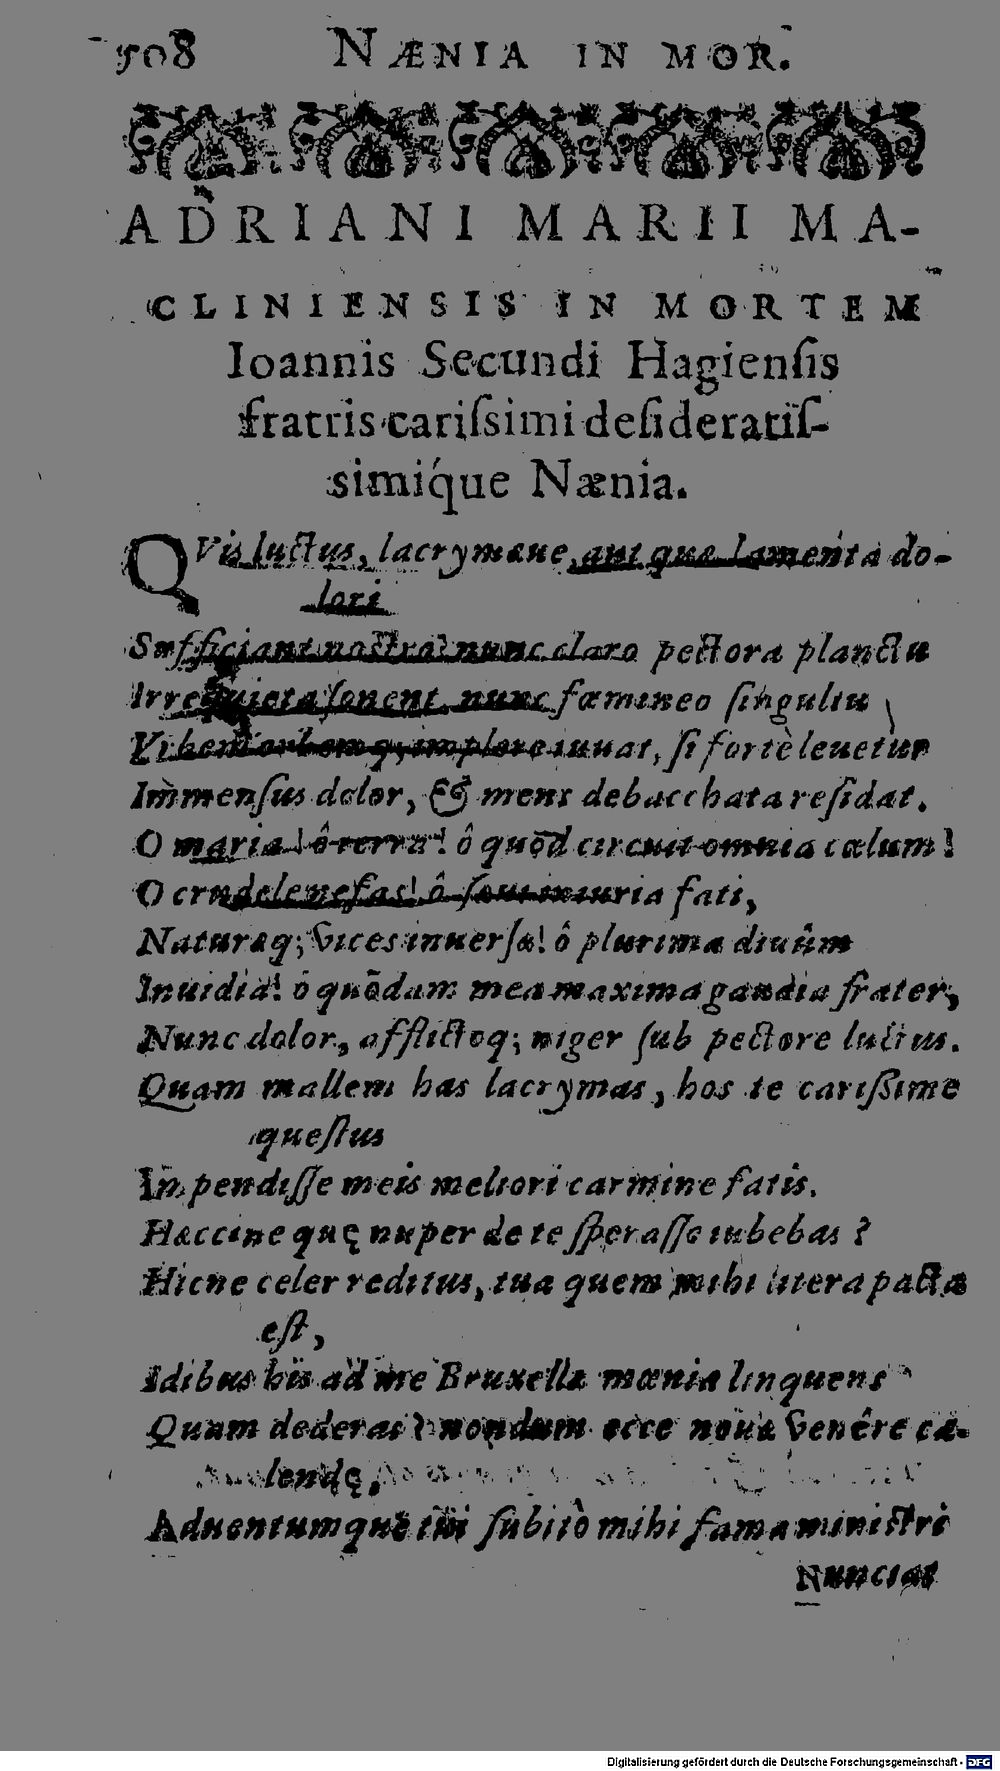 508 NÆNIA IN MOR.
ADRIANI MARII MA-
CLINIENSIS IN MORTEM
Ioannis Secundi Hagienſis
fratris cariſsimi deſideratiſ-
simíque Nænia.
QVis luctus, lacrymæue, aut quæ lamenta do-
lori
Sufficiant nostro? nunc claro pectora planctu
Irrequieta ſonent, nunc fœmineo ſingultu
iuuat, ſi fortè leuetur
Immenſus dolor, & mens debacchata reſidat.
O maria! ô terra! ô quod circuit omnia cœlum!
O crudele nefas! ô ſæua iniuria fati,
Naturæq; vices inuerſæ! ô plurima diuûm
Inuidia! ô quōdam mea maxima gaudia frater,
Nunc dolor, afflictoq; niger ſub pectore luctus.
Quam mallem has lacrymas, hos te carißime
queſtus
Impendiſſe meis meliori carmine fatis.
Hæccine quę nuper de te ſperaſſe iubebas?
Hicne celer reditus, tua quem mihi litera pacta
eſt,
Idibus his ad me Bruxellæ mœnia linquens
Quam dederas? nondum ecce nouæ venêre ca-
lendę,
Aduentumque tui ſubitò mihi fama miniſtri
Nunciat
Digitalisierung gefördert durch die Deutsche Forschungsgemeinschaft - DFG